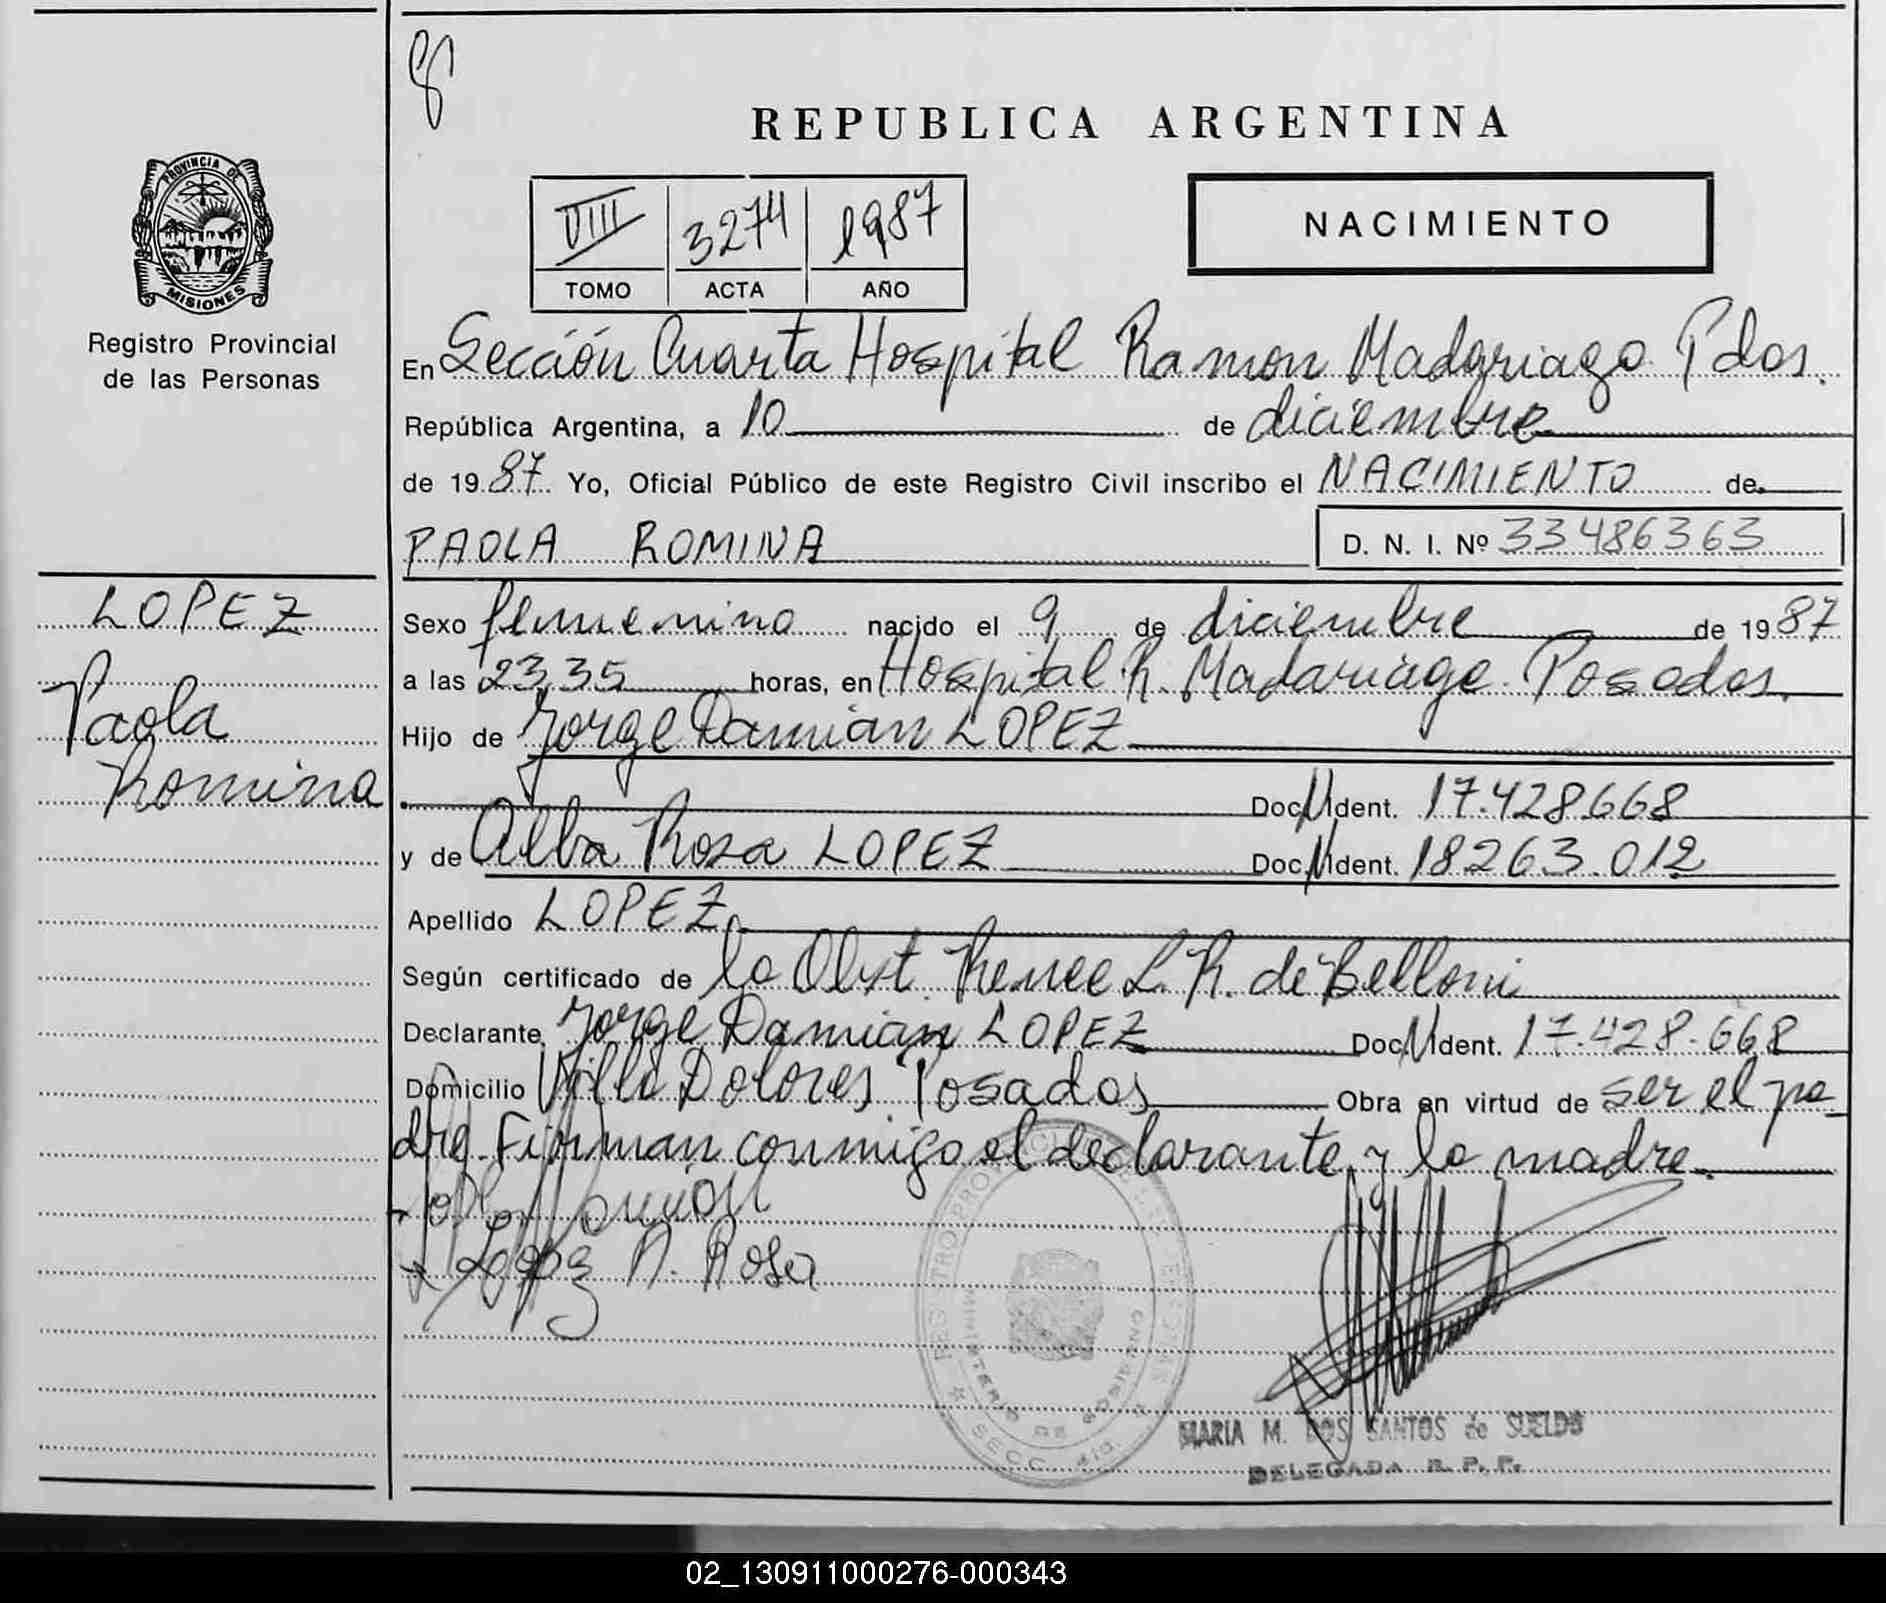 8
REPUBLICA ARGENTINA
PROVINCIA DE
MISIONES
Registro Provincial
de las Personas
VIII 3274 1987
TOMO ACTA AÑO
NACIMIENTO
En Sección Cuarta Hospital Ramon Madariaga Pdas.
República Argentina, a 10 de diciembre
de 1987 Yo, Oficial Público de este Registro Civil inscribo el NACIMIENTO de
PAOLA ROMINA D. N. I. Nº 33486363
LOPEZ
Paola
Romina
Sexo femenino nacido el 9 de diciembre de 1987
a las 23,35 horas, en Hospital R. Madariaga Posadas.
Hijo de Jorge Damian LOPEZ
Doc. Ident. 17.428.668
y de Alba Rosa LOPEZ Doc. Ident. 18263.012
Apellido LOPEZ
Según certificado de la Obst. Renee L. R. de Belloni
Declarante Jorge Damian LOPEZ Doc. Ident. 17.428.668
Domicilio Villa Dolores Posadas Obra en virtud de ser el pa
dre. Firman conmigo el declarante y la madre.
Lopez A. Rosa
SECC. 4ta.
MARIA M. DOS SANTOS de SUELDO
DELEGADA R. P. P.
02_130911000276-000343